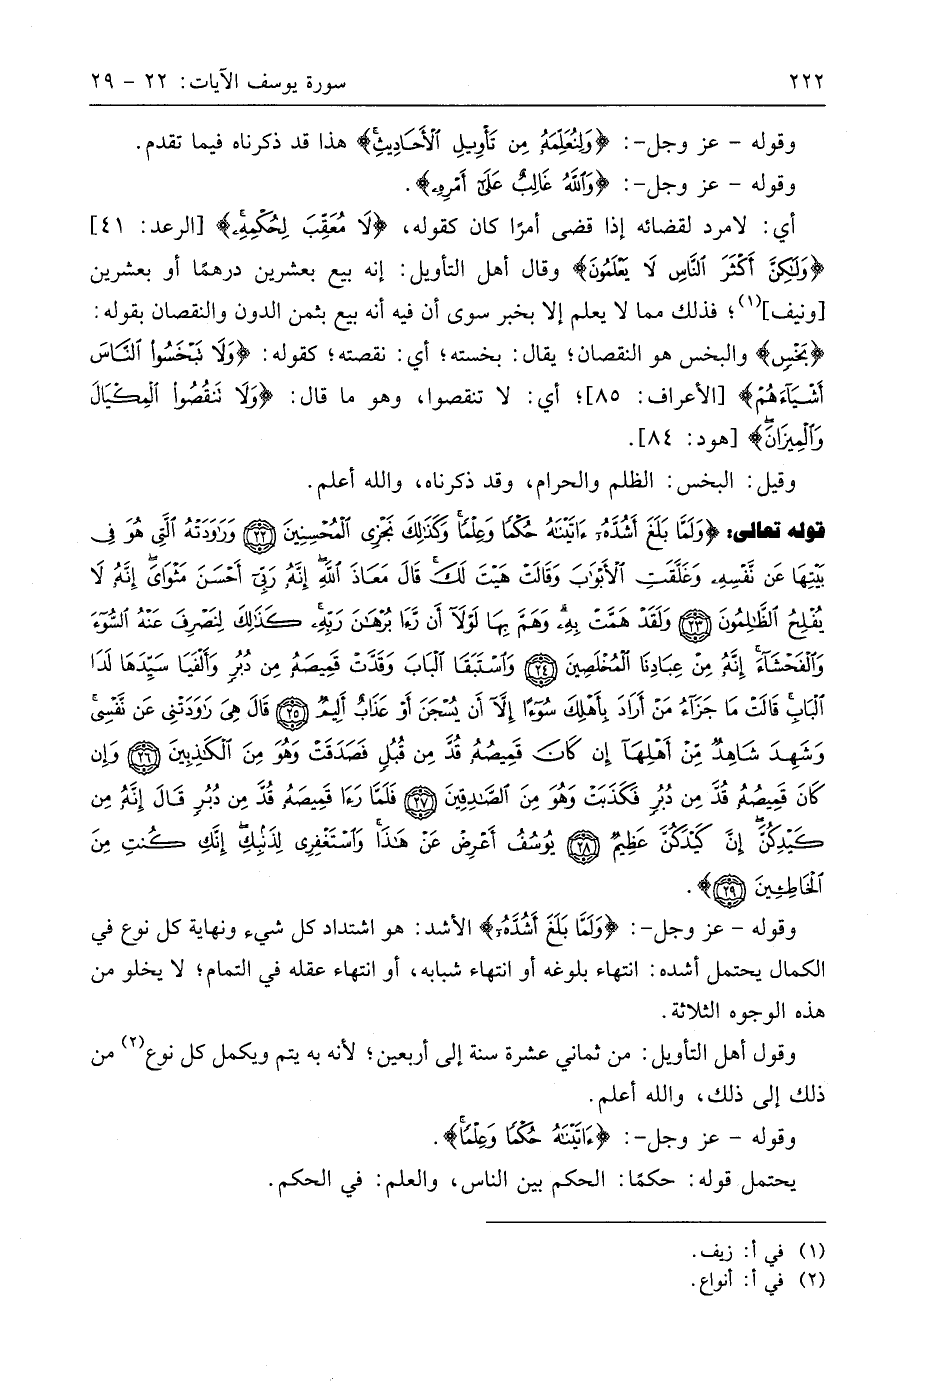 ٢٢٢ سورة يوسف الآيات: ٢٢ - ٢٩
وقوله - عز وجل-: ﴿وَلِنُعَلِّمَهُۥ مِن تَأۡوِيلِ ٱلۡأَحَادِيثِۚ﴾ هذا قد ذكرناه فيما تقدم.
وقوله - عز وجل-: ﴿وَٱللَّهُ غَالِبٌ عَلَىٰٓ أَمۡرِهِۦ﴾.
أي: لامرد لقضائه إذا قضى أمرًا كان كقوله، ﴿لَا مُعَقِّبَ لِحُكۡمِهِۦۚ﴾ [الرعد: ٤١]
﴿وَلَٰكِنَّ أَكۡثَرَ ٱلنَّاسِ لَا يَعۡلَمُونَ﴾ وقال أهل التأويل: إنه بيع بعشرين درهمًا أو بعشرين
[ونيف](١)؛ فذلك مما لا يعلم إلا بخبر سوى أن فيه أنه بيع بثمن الدون والنقصان بقوله:
﴿بَخۡسٖ﴾ والبخس هو النقصان؛ يقال: بخسته؛ أي: نقصته؛ كقوله: ﴿وَلَا تَبۡخَسُواْ ٱلنَّاسَ
أَشۡيَآءَهُمۡ﴾ [الأعراف: ٨٥]؛ أي: لا تنقصوا، وهو ما قال: ﴿وَلَا تَنقُصُواْ ٱلۡمِكۡيَالَ
وَٱلۡمِيزَانَۖ﴾ [هود: ٨٤].
وقيل: البخس: الظلم والحرام، وقد ذكرناه، والله أعلم.
قوله تعالى: ﴿وَلَمَّا بَلَغَ أَشُدَّهُۥٓ ءَاتَيۡنَٰهُ حُكۡمٗا وَعِلۡمٗاۚ وَكَذَٰلِكَ نَجۡزِي ٱلۡمُحۡسِنِينَ ٢٢ وَرَٰوَدَتۡهُ ٱلَّتِي هُوَ فِي
بَيۡتِهَا عَن نَّفۡسِهِۦ وَغَلَّقَتِ ٱلۡأَبۡوَٰبَ وَقَالَتۡ هَيۡتَ لَكَۚ قَالَ مَعَاذَ ٱللَّهِۖ إِنَّهُۥ رَبِّيٓ أَحۡسَنَ مَثۡوَايَۖ إِنَّهُۥ لَا
يُفۡلِحُ ٱلظَّٰلِمُونَ ٢٣ وَلَقَدۡ هَمَّتۡ بِهِۦۖ وَهَمَّ بِهَا لَوۡلَآ أَن رَّءَا بُرۡهَٰنَ رَبِّهِۦۚ كَذَٰلِكَ لِنَصۡرِفَ عَنۡهُ ٱلسُّوٓءَ
وَٱلۡفَحۡشَآءَۚ إِنَّهُۥ مِنۡ عِبَادِنَا ٱلۡمُخۡلَصِينَ ٢٤ وَٱسۡتَبَقَا ٱلۡبَابَ وَقَدَّتۡ قَمِيصَهُۥ مِن دُبُرٖ وَأَلۡفَيَا سَيِّدَهَا لَدَا
ٱلۡبَابِۚ قَالَتۡ مَا جَزَآءُ مَنۡ أَرَادَ بِأَهۡلِكَ سُوٓءًا إِلَّآ أَن يُسۡجَنَ أَوۡ عَذَابٌ أَلِيمٞ ٢٥ قَالَ هِيَ رَٰوَدَتۡنِي عَن نَّفۡسِيۚ
وَشَهِدَ شَاهِدٞ مِّنۡ أَهۡلِهَآ إِن كَانَ قَمِيصُهُۥ قُدَّ مِن قُبُلٖ فَصَدَقَتۡ وَهُوَ مِنَ ٱلۡكَٰذِبِينَ ٢٦ وَإِن
كَانَ قَمِيصُهُۥ قُدَّ مِن دُبُرٖ فَكَذَبَتۡ وَهُوَ مِنَ ٱلصَّٰدِقِينَ ٢٧ فَلَمَّا رَءَا قَمِيصَهُۥ قُدَّ مِن دُبُرٖ قَالَ إِنَّهُۥ مِن
كَيۡدِكُنَّۖ إِنَّ كَيۡدَكُنَّ عَظِيمٞ ٢٨ يُوسُفُ أَعۡرِضۡ عَنۡ هَٰذَاۚ وَٱسۡتَغۡفِرِي لِذَنۢبِكِۖ إِنَّكِ كُنتِ مِنَ
ٱلۡخَاطِـِٔينَ ٢٩﴾.
وقوله - عز وجل-: ﴿وَلَمَّا بَلَغَ أَشُدَّهُۥٓ﴾ الأشد: هو اشتداد كل شيء ونهاية كل نوع في
الكمال يحتمل أشده: انتهاء بلوغه أو انتهاء شبابه، أو انتهاء عقله في التمام؛ لا يخلو من
هذه الوجوه الثلاثة.
وقول أهل التأويل: من ثماني عشرة سنة إلى أربعين؛ لأنه به يتم ويكمل كل نوع(٢) من
ذلك إلى ذلك، والله أعلم.
وقوله - عز وجل-: ﴿ءَاتَيۡنَٰهُ حُكۡمٗا وَعِلۡمٗاۚ﴾.
يحتمل قوله: حكمًا: الحكم بين الناس، والعلم: في الحكم.
(١) في أ: زيف.
(٢) في أ: أنواع.